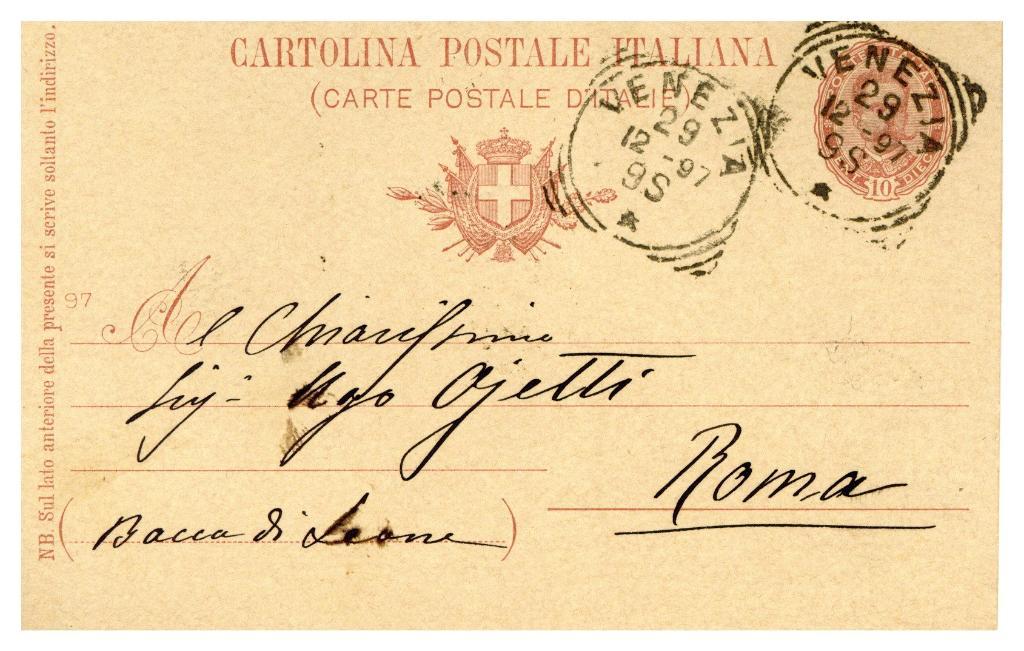 CARTOLINA POSTALE ITALIANA
(CARTE POSTALE D'ITALIE)
VENEZIA
29
12-97
9S
VENEZIA
29
12-97
9S
10
NB. Sul lato anteriore della presente si scrive soltanto l'indirizzo.
97
Al Chiarissimo
Sig- Ugo Ojetti
Roma
(Bocca di Leone)